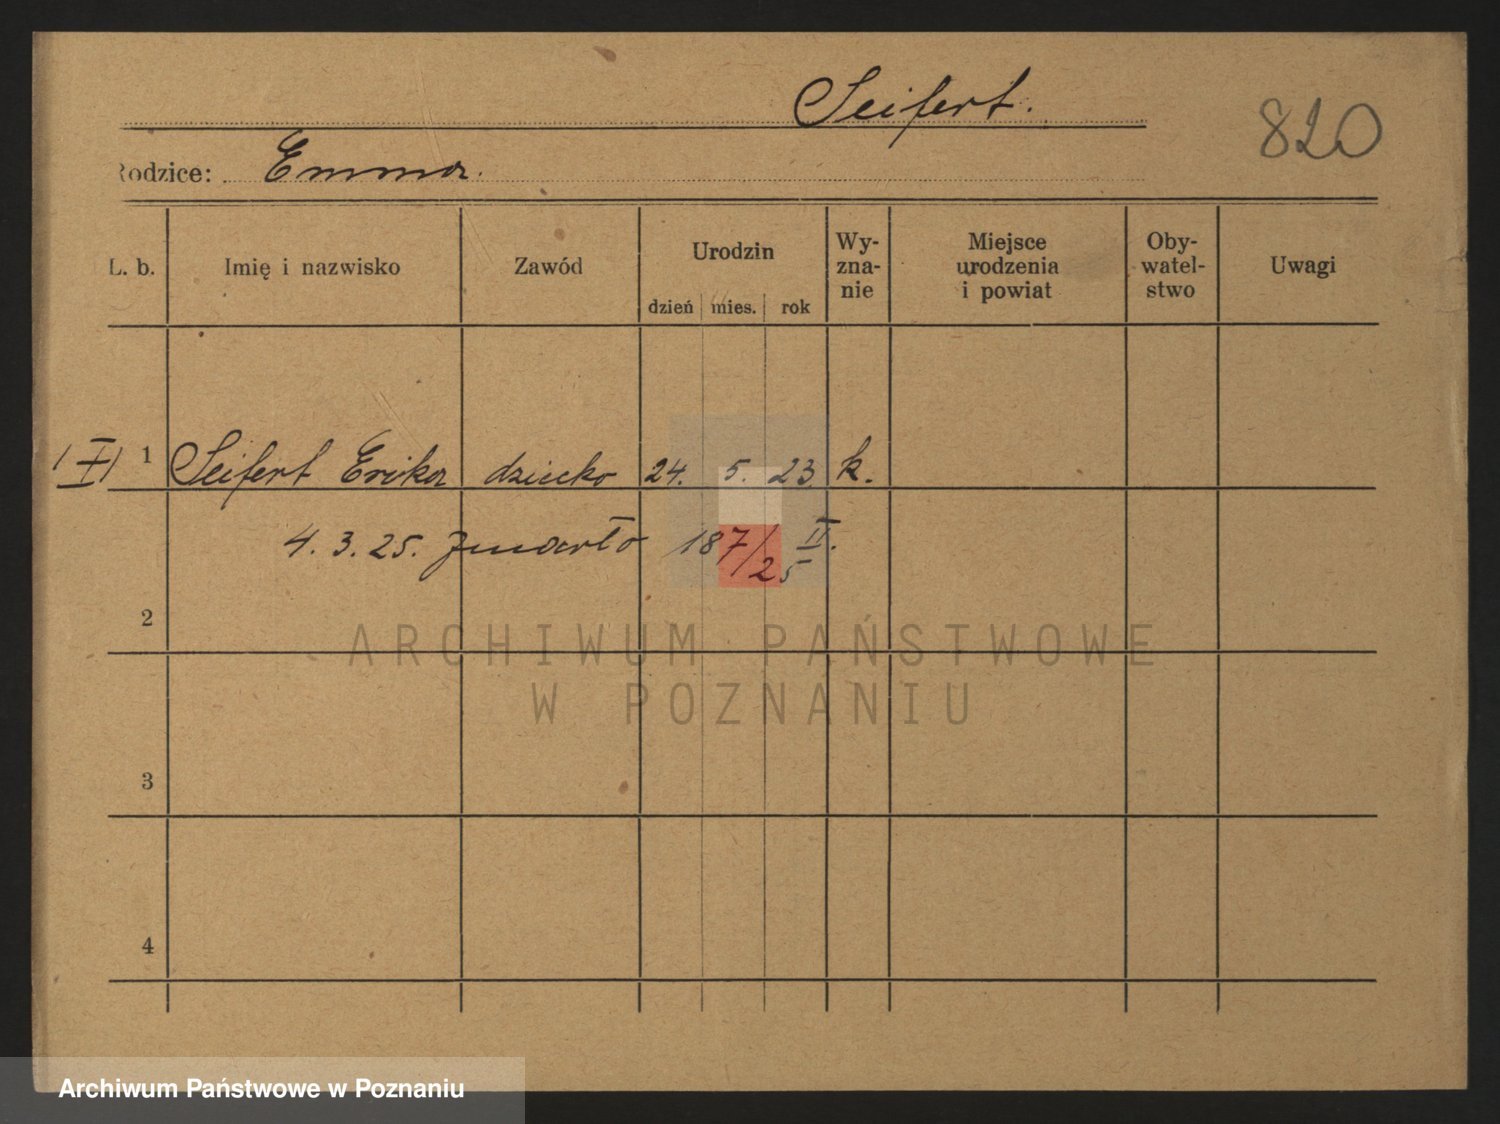 Seifert.
820
Rodzice: Emma.
L. b. Imię i nazwisko Zawód Urodzin dzień mies. rok Wy-zna-nie Miejsce urodzenia i powiat Oby-watel-stwo Uwagi
1 Seifert Erika dziecko 24. 5. 23 k.
4. 3. 25. Zmarło 187/25 II.
2
ARCHIWUM PAŃSTWOWE
W POZNANIU
3
4
Archiwum Państwowe w Poznaniu